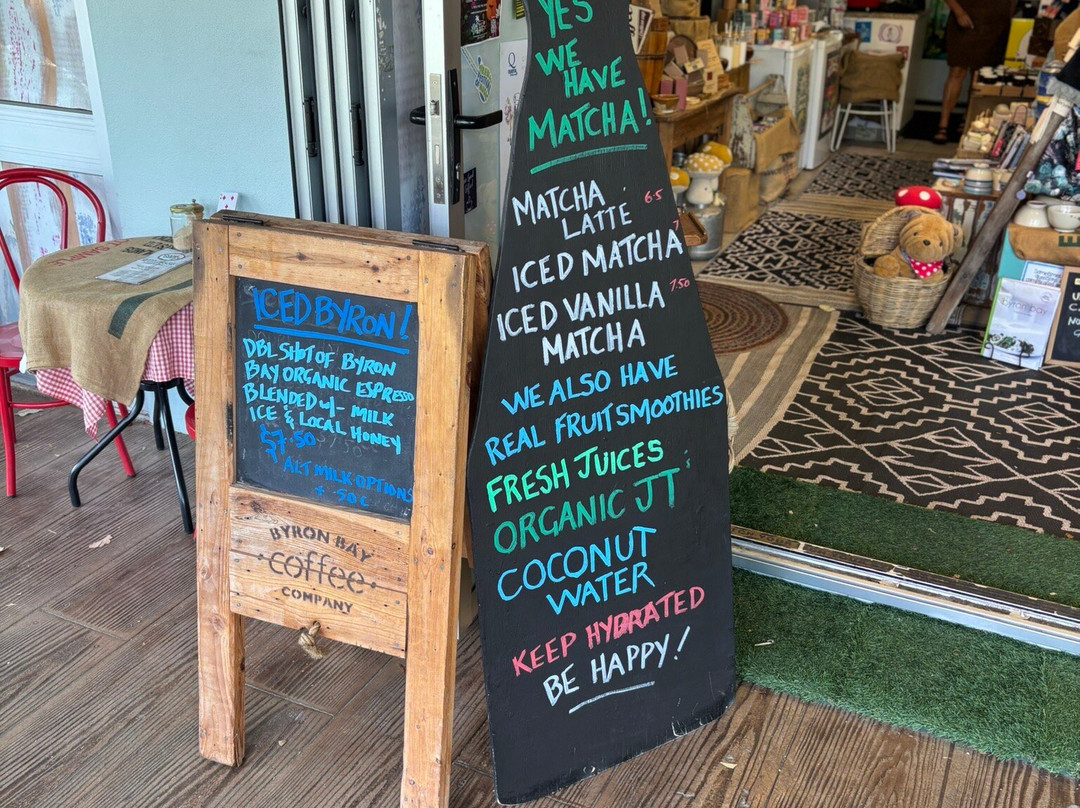 ICED BYRON!
DBL SHOT OF BYRON
BAY ORGANIC ESPRESSO
BLENDED w/- MILK
ICE & LOCAL HONEY
$7.50
ALT MILK OPTIONS
+ .50c
BYRON BAY
coffee
COMPANY
YES
WE
HAVE
MATCHA!
MATCHA 6.5
LATTE
ICED MATCHA 7
ICED VANILLA 7.50
MATCHA
WE ALSO HAVE
REAL FRUIT SMOOTHIES
FRESH JUICES
ORGANIC JT'S
COCONUT
WATER
KEEP HYDRATED
BE HAPPY!